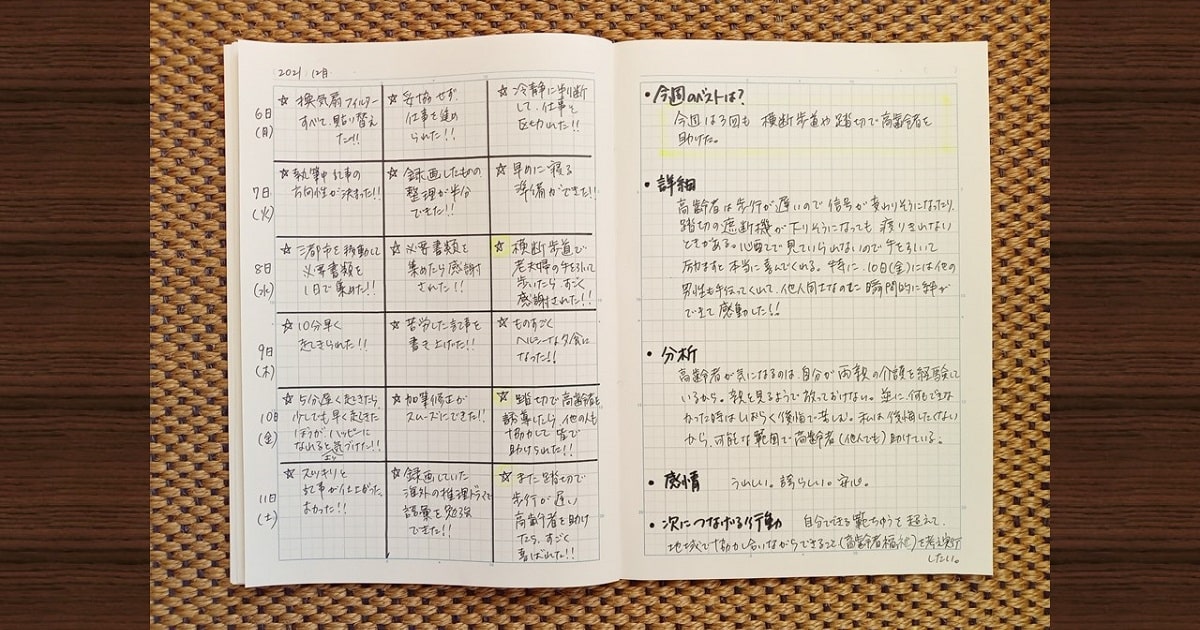 2021 12月
6日
(月)
☆ 換気扇フィルター
すべて、貼り替え
た!!
☆ 妥協せず、
仕事を進め
られた!!
☆ 冷静に判断
して、仕事を
区切れた!!
7日
(火)
☆ 執筆中記事の
方向性が決まった!!
☆ 録画したものの
整理が半分
できた!!
☆ 早めに寝る
準備ができた!!
8日
(水)
☆ 三都市を移動して
必要書類を
1日で集めた!!
☆ 必要書類を
集めたら感謝
された!!
☆ 横断歩道で
老夫婦の手を引いて
歩いたら、すごく
感謝された!!
9日
(木)
☆ 10分早く
起きられた!!
☆ 苦労した記事を
書き上げた!!
☆ ものすごく
ヘルシーな夕食に
なった!!
10日
(金)
☆ 5分遅く起きたら、
少しでも早く起きた
ほうが、ハッピーに
なれると気づけた!!
☆ 加筆修正が
スムーズにできた!!
☆ 踏切で高齢者を
誘導したら、他の人も
協力して皆で
助けられた!!
11日
(土)
☆ スッキリと
記事が仕上がった。
よかった!!
☆ 録画していた
海外の推理ドラマで
語彙を勉強
できた!!
☆ また踏切で
歩行が遅い
高齢者を助け
たら、すごく
喜ばれた!!
• 今週のベストは?
今週は3回も 横断歩道や踏切で高齢者を
助けた。
• 詳細
高齢者は歩行が遅いので信号が変わりそうになったり、
踏切の遮断機が下りそうになっても 渡りきれない
ときがある。心配で見ていられないので手を引いて
励ますと本当に喜んでくれる。特に、10日(金)には他の
男性も手伝ってくれて、他人同士なのに瞬間的に絆が
できて感動した!!
• 分析
高齢者が気になるのは、自分が両親の介護を経験して
いるから。親を見るようで放っておけない。逆に、何もできな
かった時はしばらく後悔で苦しむ。私は後悔したくない
から、可能な範囲で高齢者(他人でも)助けている。
• 感情 うれしい。誇らしい。安心。
• 次につなげる行動 自分でできる範ちゅうを超えて、
地域で協力し合いながらできること(高齢者福祉)を考え実行
したい。